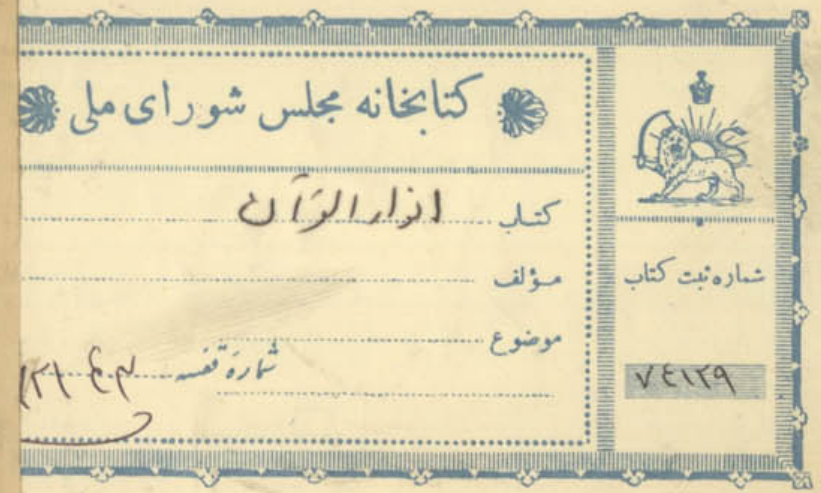 کتابخانه مجلس شورای ملی
کتاب انوار القرآن
مؤلف
موضوع
شماره قفسه
شماره ثبت کتاب
۷۴۱۲۹